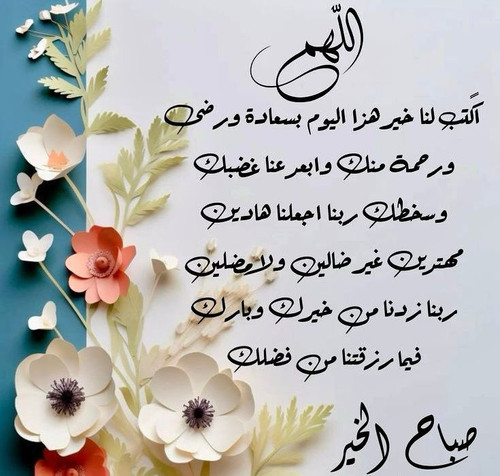 اللهم
اكتب لنا خير هذا اليوم بسعادة ورضى
ورحمة منك وابعد عنا غضبك
وسخطك ربنا اجعلنا هادين
مهتدين غير ضالين ولا مضلين
ربنا زدنا من خيرك وبارك
فيما رزقتنا من فضلك
صباح الخير